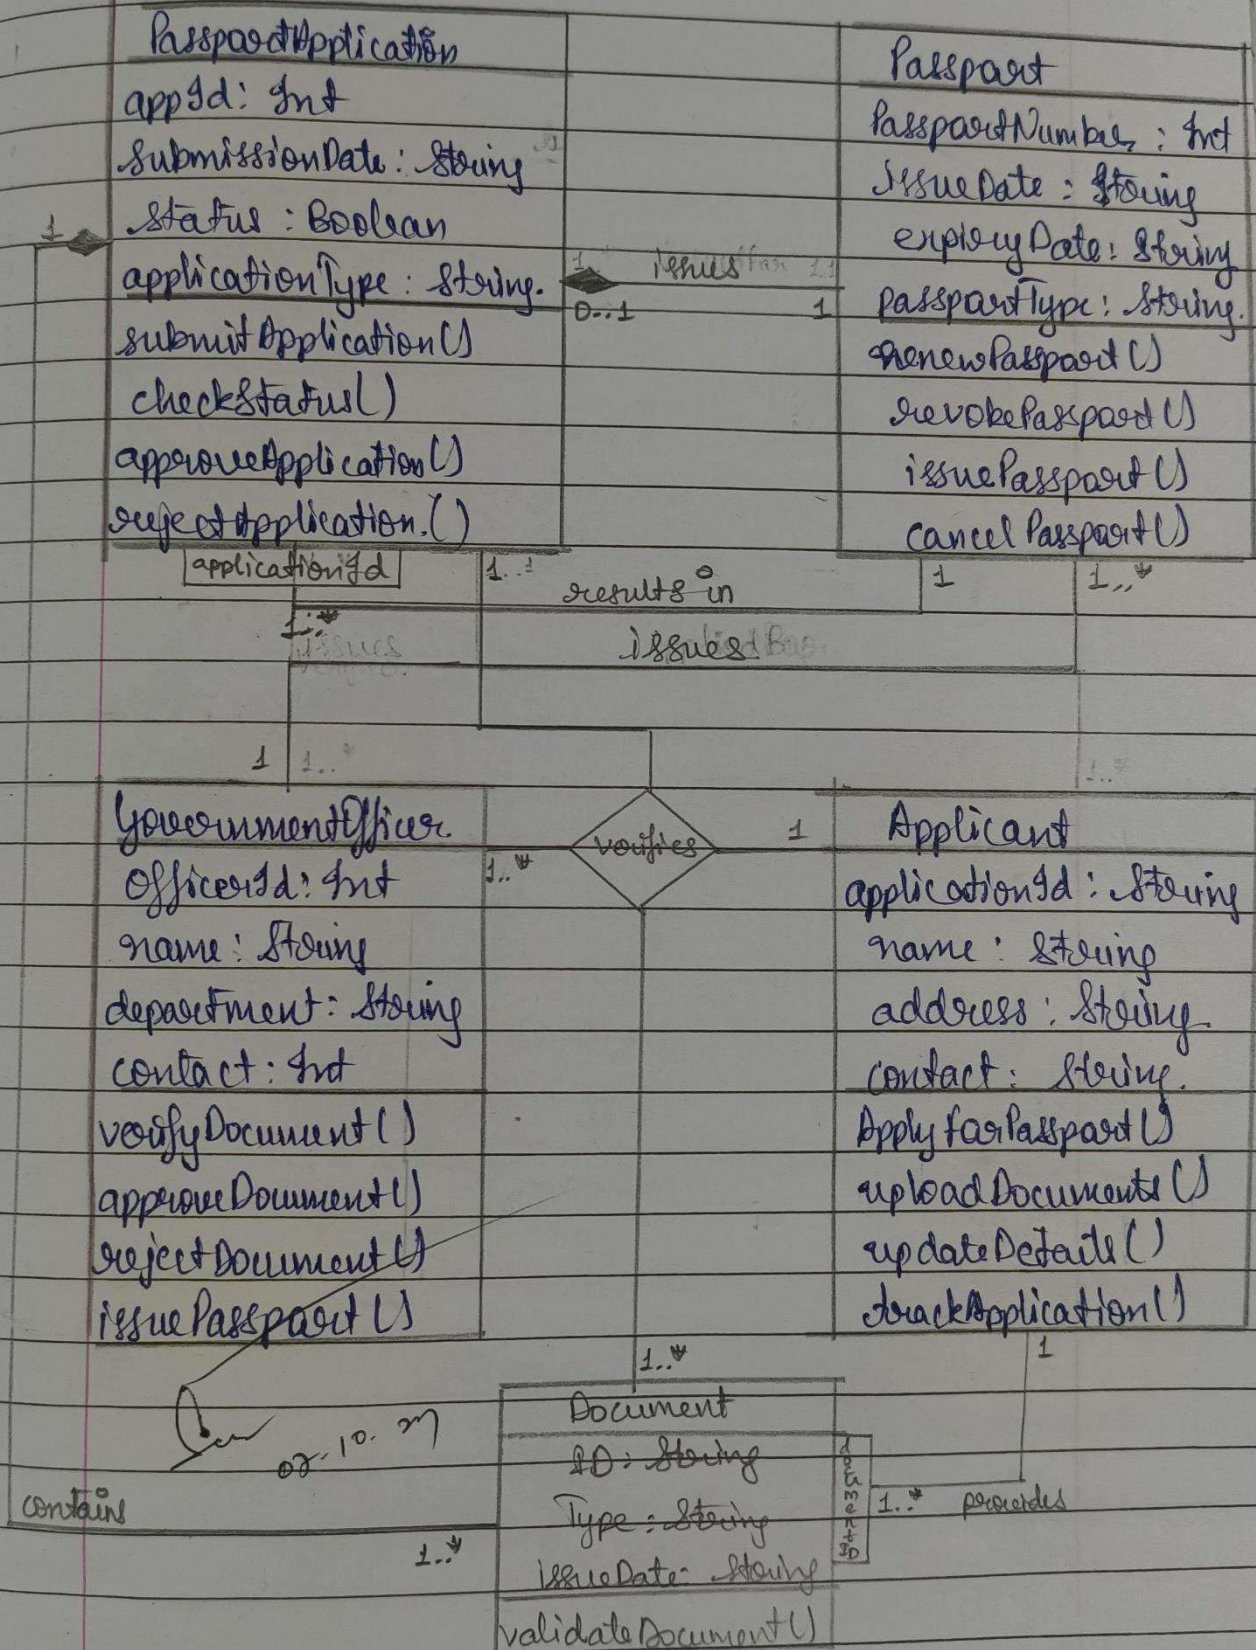 PassportApplication
appId: Int
submissionDate: String
status: Boolean
applicationType: String.
submitApplication()
checkStatus()
approveApplication()
rejectApplication.()
applicationId
1
0..1
issues
1
Passport
PassportNumber: Int
issueDate: String
expiryDate: String
passportType: String.
renewPassport()
revokePassport()
issuePassport()
cancelPassport()
1..
results in
1
1..*
1..*
issues
issues
1
1..*
1..
GovernmentOfficer
OfficerId: Int
name: String
department: String
contact: Int
verifyDocument()
approveDocument()
rejectDocument()
issuePassport()
1..*
verifies
1
Applicant
applicationId: String
name: String
address: String.
contact: String.
ApplyforPassport()
uploadDocuments()
updateDetails()
trackApplication()
1..*
1
Document
ID: String
Type: String
issueDate: String
validateDocument()
documentID
1..*
provides
contains
1..*